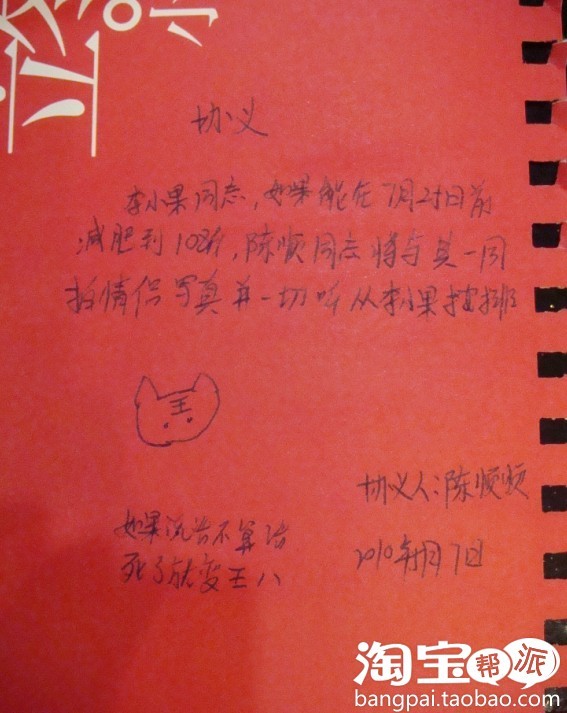 小
立
协义
李小果同志,如果能在7月25日前
减肥到108斤,陈顺同志将与其一同
拍情侣写真并一切听从李小果按排
王
协义人:陈顺顺
如果说 不算话
死了就变王八
2010年 月7日
淘宝帮派
bangpai.taobao.com